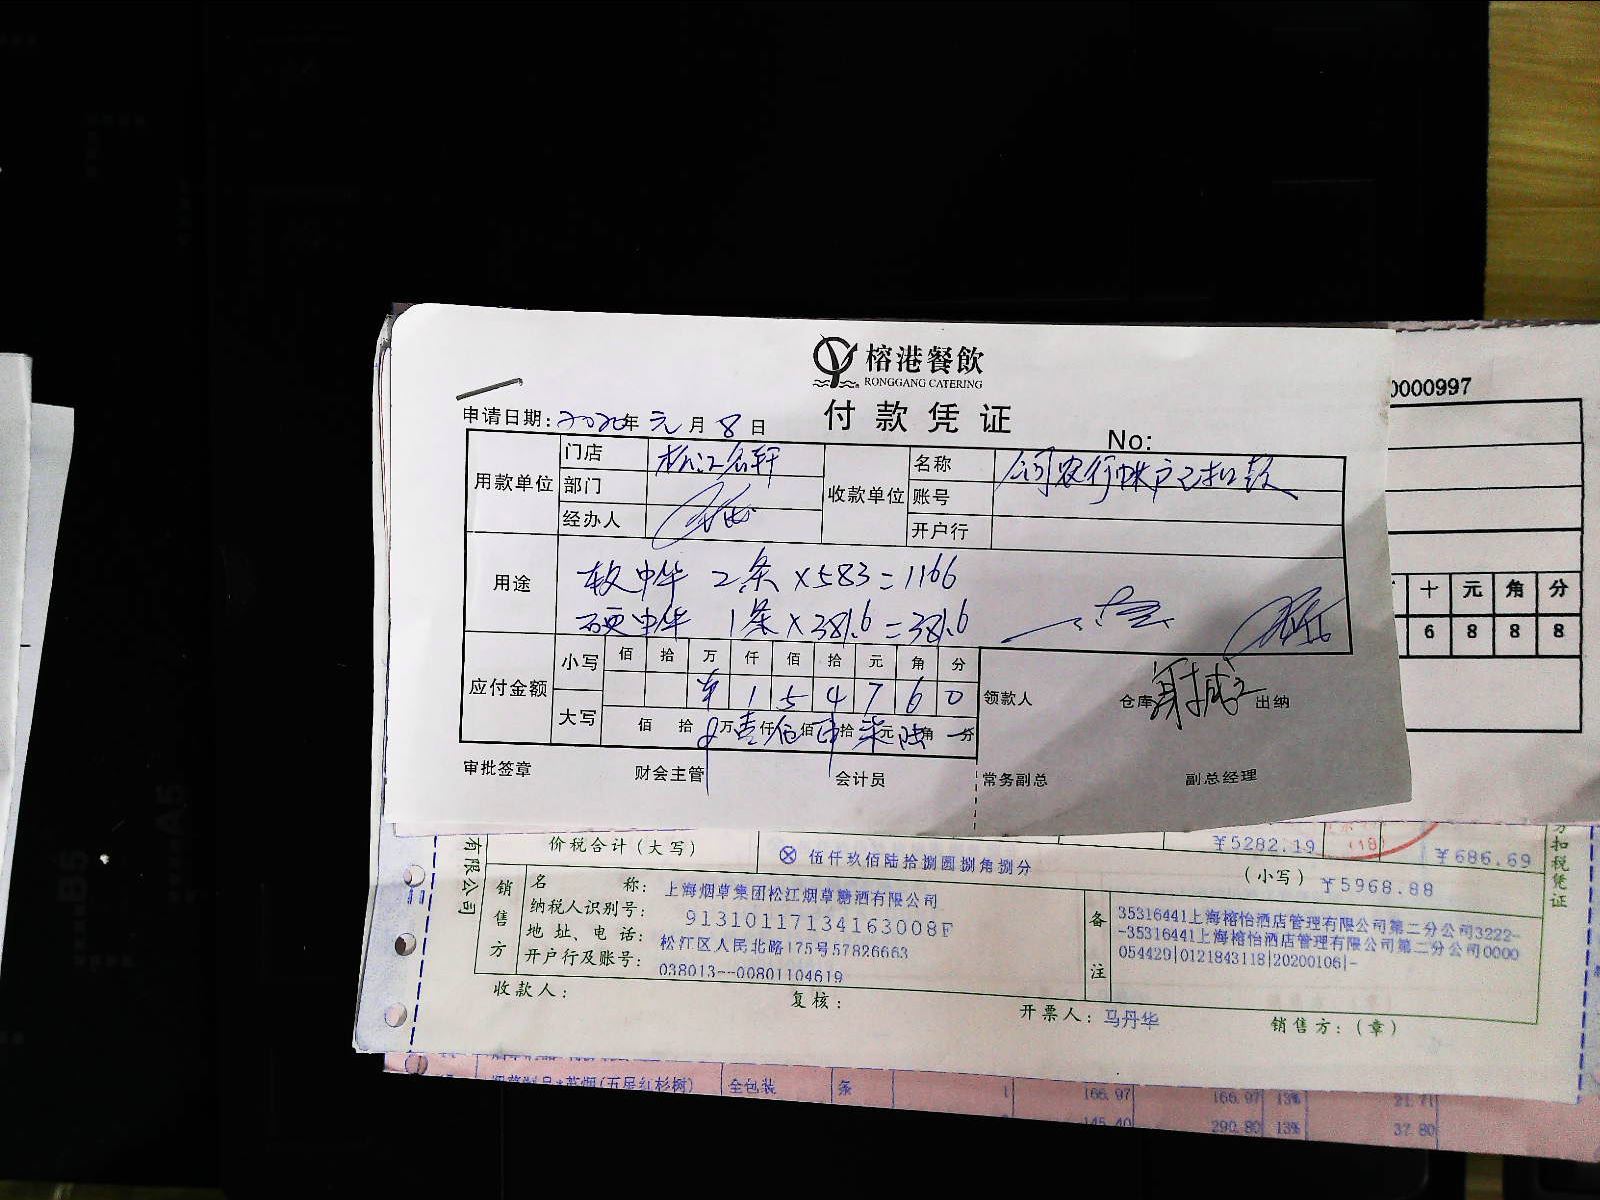 榕港餐飲
RONGGANG CATERING
付款凭证
0000997
申请日期：2020年元月8日
No:
用款单位 门店 松江名轩 收款单位 名称 公司农行帐户已扣款
部门 账号
经办人 开户行
用途 软中华 2条×583=1166
硬中华 1条×381.6=381.6
十 元 角 分
6 8 8 8
应付金额 小写 佰 拾 万 仟 佰 拾 元 角 分
1 5 4 7 6 0
领款人 仓库 出纳
大写 佰 拾 万 壹仟 伍佰 肆拾 柒元 陆角 分
审批签章 财会主管 会计员 常务副总 副总经理
有限公司
¥5282.19 ¥686.69
价税合计(大写) ⊗ 伍仟玖佰陆拾捌圆捌角捌分 (小写) ¥5968.88
扣税凭证
销售方
名 称: 上海烟草集团松江烟草糖酒有限公司
纳税人识别号: 91310117134163008F
地址、电话: 松江区人民北路175号57826663
开户行及账号: 038013--00801104619
备注
35316441上海榕怡酒店管理有限公司第二分公司3222-
-35316441上海榕怡酒店管理有限公司第二分公司0000
054429|0121843118|20200106|-
收款人: 复核: 开票人: 马丹华 销售方: (章)
(五星红杉树) 全包装 条 1 166.97 166.97 13% 21.71
145.40 290.80 13% 37.80
B5
A5